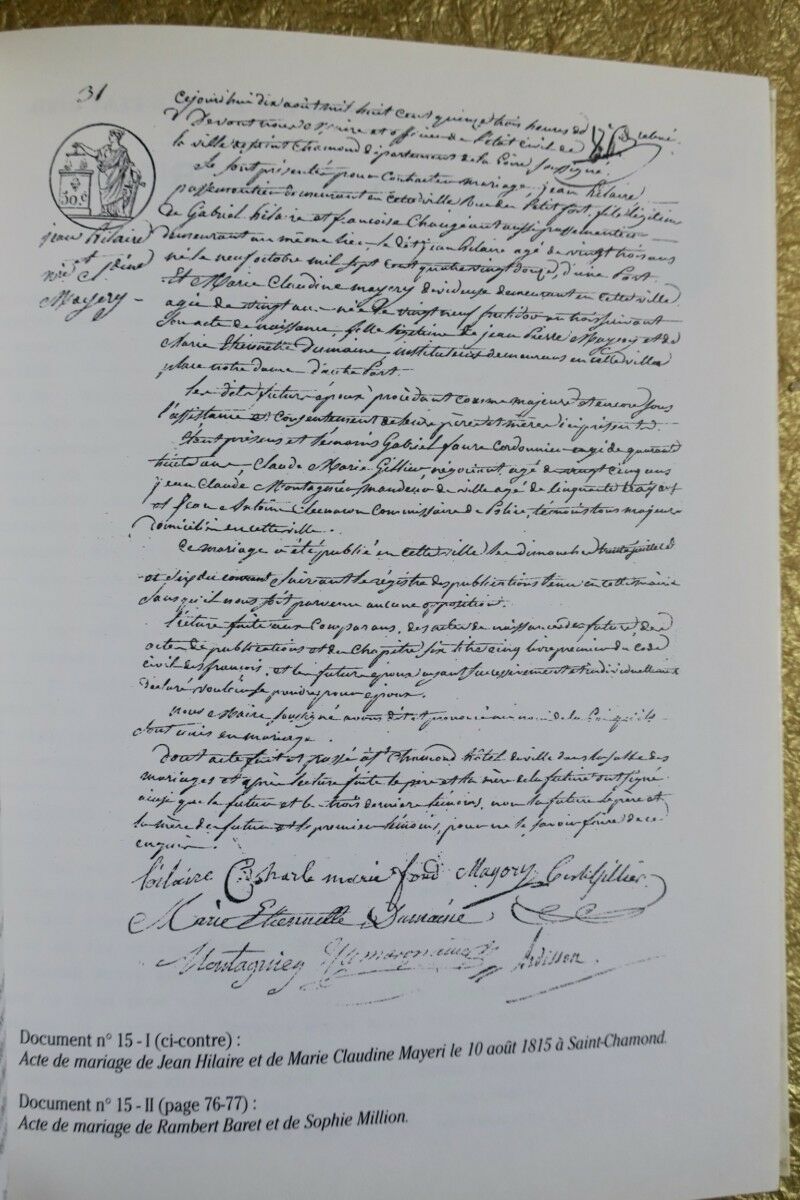 31
Cejourd'hui dix août mil huit cent quinze trois heures de
Devant nous Maire et officier de l'état civil de
la ville de Saint Chamond département de la Loire soussigné
Se sont présentés pour contracter mariage, jean hilaire
passementier demeurant en cette ville Rue du Petit fort, fils légitime
de Gabriel hilaire et françoise aussi passementier
30.c
jean hilaire
et
Mie Cdine
Mayery
demeurant au même lieu le dit jean hilaire agé de vingt trois ans
né le neuf octobre mil sept cent quatre vingt douze, d'une Part
Et Marie Claudine mayery devideuse demeurant en cette ville
agée de vingt ans née le vingt neuf fructidor an trois suivant
Son acte de naissance, fille légitime de jean Pierre Mayery et de
Marie Etiennette Dumaine, instituteurs demeurans en cette ville
place notre dame d'autre Part
Les dits futurs époux procédant comme majeurs et encore sous
l'assistance et consentement de leurs pères et mères
Etant présens et témoins Gabriel faure Cordonnier agé de quarante
huit ans, Claude Marie Gillier négociant, agé de vingt cinq ans
jean Claude Montagnier mandeur de ville agé de cinquante
et Antoine Commissaire de Police, témoins tous majeurs
Domiciliés en cette ville.
Ce mariage a été publié en cette ville les dimanches trente juillet
et six du courant Suivant le régistre des publications tenu en cette mairie
Sans qu'il nous soit parvenu aucune opposition.
lecture faite aux Comparans, des actes de naissances des futurs, des
actes de publications et du Chapitre six titre cinq livre premier du code
civil des français, et les futurs époux ayant successivement et individuellement
déclaré vouloir se prendre pour époux.
Nous Maire, soussigné avons dit et prononcé au nom de la Loi qu'ils
sont unis en mariage.
Dont acte fait et passé à St Chamond hôtel de ville dans la salle des
mariages et après lecture faite le père et la mère de la future ont signé
ainsi que le futur et les trois derniers témoins, non la future le père et
la mère du futur et le premier témoin, pour ne le savoir faire de ce
enquis.
hilaire Charle marie Mayery Gillier
Marie Etiennette Dumaine
Montagnier Ardisson
Document n° 15 - I (ci-contre) :
Acte de mariage de Jean Hilaire et de Marie Claudine Mayeri le 10 août 1815 à Saint-Chamond.
Document n° 15 - II (page 76-77) :
Acte de mariage de Rambert Baret et de Sophie Million.